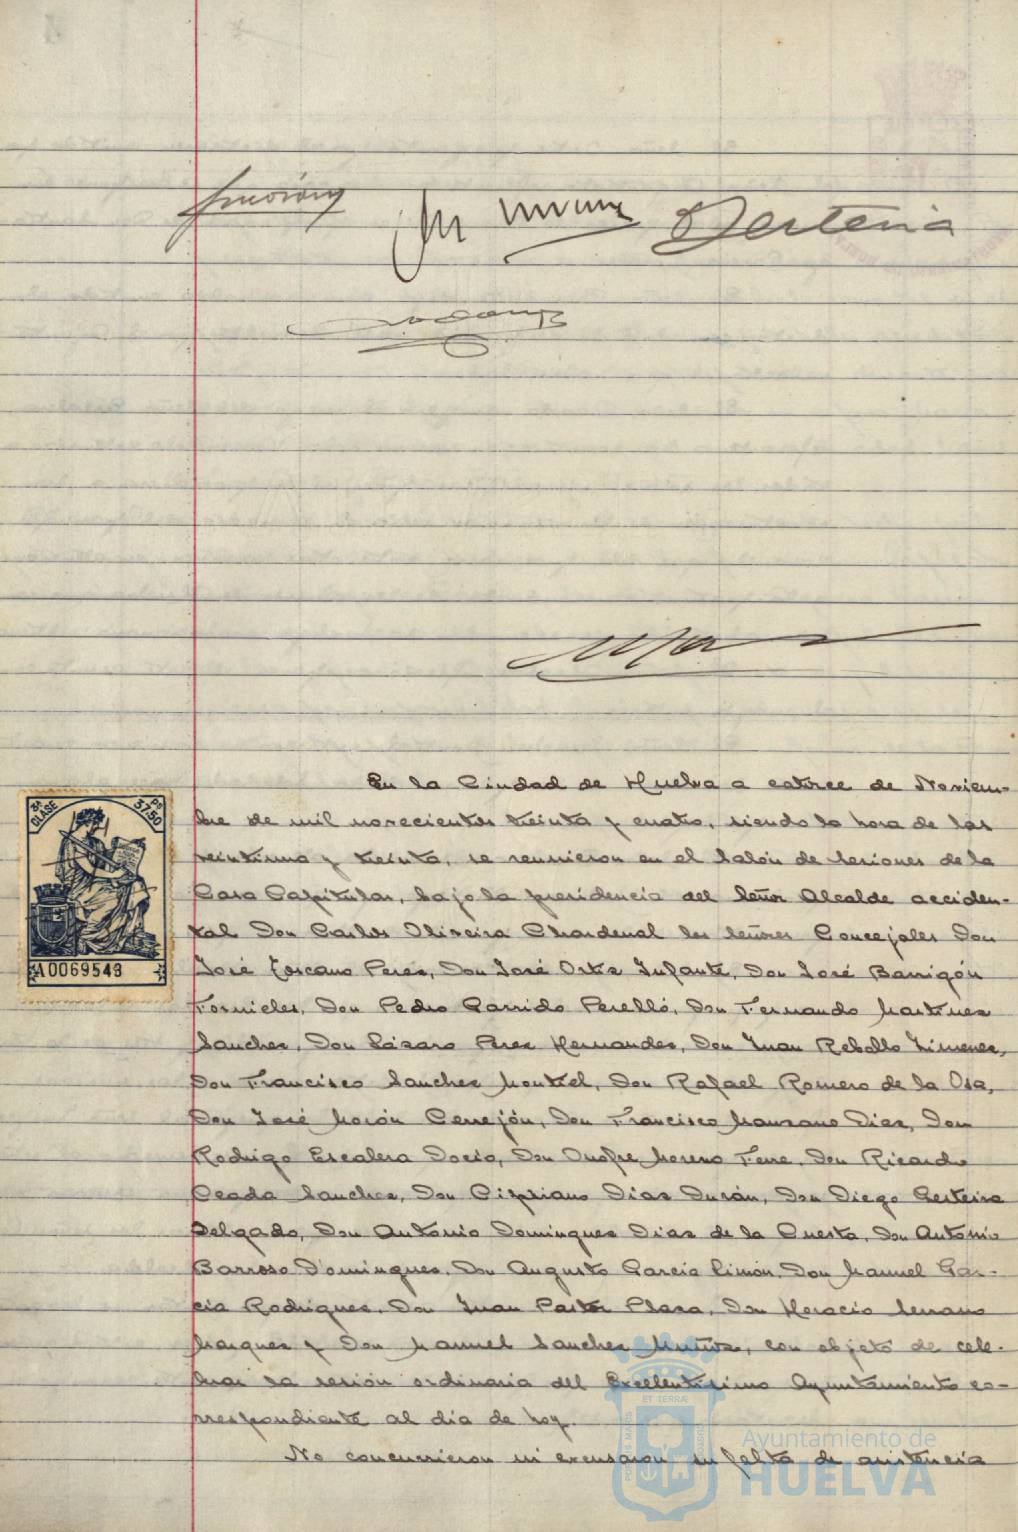 Gerteira
En la Ciudad de Huelva a catorce de Noviem-
bre de mil novecientos treinta y cuatro, siendo la hora de las
veintiuna y treinta, se reunieron en el Salón de Sesiones de la
Casa Capitular, bajo la presidencia del Señor Alcalde acciden-
tal Don Carlos Oliveira Chardenal los Señores Concejales Don
José Toscano Perez, Don José Ortiz Infante, Don José Barrigón
Fornieles, Don Pedro Garrido Perelló, Don Fernando Martinez
Sanchez, Don Lázaro Perez Hernandez, Don Juan Rebollo Jimenez,
Don Francisco Sanchez Montiel, Don Rafael Romero de la Osa,
Don José Morón Cerrejón, Don Francisco Manzano Diaz, Don
Rodrigo Escalera Docio, Don Onofre Moreno Ferre, Don Ricardo
Ceada Sanchez, Don Cipriano Diaz Durán, Don Diego Gerteira
Delgado, Don Antonio Dominguez Diaz de la Cuesta, Don Antonio
Barroso Dominguez, Don Augusto Garcia Limón, Don Manuel Gar-
cia Rodriguez, Don Juan Pastor Plaza, Don Horacio Serrano
Marquez y Don Manuel Sanchez Muñoz, con objeto de cele-
brar la sesión ordinaria del Excelentísimo Ayuntamiento co-
rrespondiente al día de hoy.
No concurrieron ni excusaron su falta de asistencia
3ª CLASE
Ps 37'50
A0069543
Ayuntamiento de
HUELVA